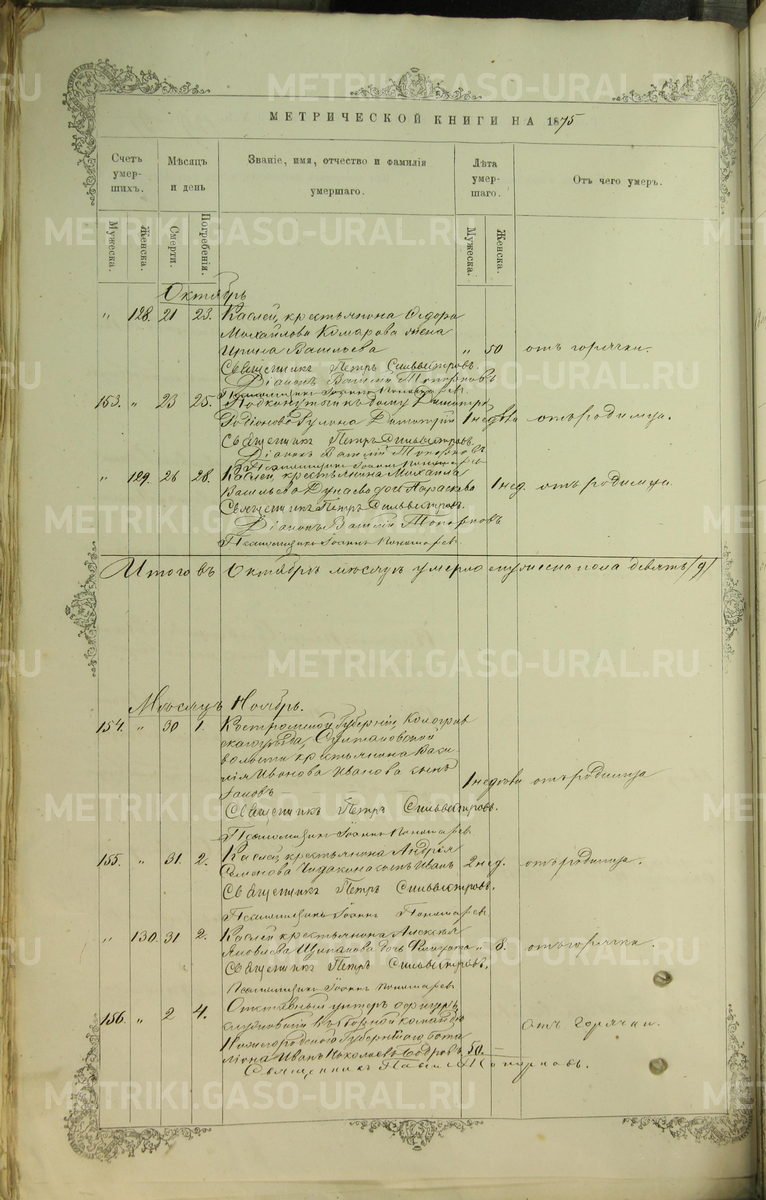 МЕТРИЧЕСКОЙ КНИГИ НА 1875
Счетъ умер-шихъ.
Мѣсяцъ и день
Званіе, имя, отчество и фамилія умершаго.
Лѣта умер-шаго.
Отъ чего умеръ.
Мужеска.
Женска.
Смерти.
Погребенія.
Мужеска.
Женска.
Октябрь
" 128. 21 23. Каслей, крестьянина Ѳедора
Михайлова Комарова жена
Ирина Васильева " 50 отъ горячки.
Священникъ Петръ Сильвестровъ.
Діаконъ Василій Топорковъ
Псаломщикъ Іоаннъ Пономаревъ
153. " 23 25. Димитрія
Димитрій 1 недѣли отъ родимца.
Священникъ Петръ Сильвестровъ.
Діаконъ Василій Топорковъ
Псаломщикъ Іоаннъ Пономаревъ
" 129. 26 28. Каслей, крестьянина Михаила
Васильева Дунаева дочь Параскева 1 нед. отъ родимца.
Священникъ Петръ Сильвестровъ.
Діаконъ Василій Топорковъ
Псаломщикъ Іоаннъ Пономаревъ
Итого въ Октябрѣ мѣсяцѣ умерло мужеска пола девять /9/
Мѣсяцъ Ноябрь.
154. " 30 1. Костромской губерніи, Кологрив
скаго уѣзда,
волости крестьянина Васи
лія Иванова Иванова сынъ
1 недѣли отъ родимца
Священникъ Петръ Сильвестровъ.
Псаломщикъ Іоаннъ Пономаревъ
155. " 31. 2. Каслей, крестьянина Андрея
Семенова сынъ Иванъ 2 нед. отъ родимца.
Священникъ Петръ Сильвестровъ.
Псаломщикъ Іоаннъ Пономаревъ
" 130. 31 2. Каслей крестьянина Алексѣя
Яковлева Щипанова дочь " 8. отъ горячки.
Священникъ Петръ Сильвестровъ.
Псаломщикъ Іоаннъ Пономаревъ
156. " 2 4. Отставный унтеръ офицеръ,
служившій командѣ
Нижегородскаго Губернскаго бата
ліона Иванъ Николаевъ 50. отъ горячки.
Священникъ Павелъ Топорковъ.
METRIKI.GASO-URAL.RU